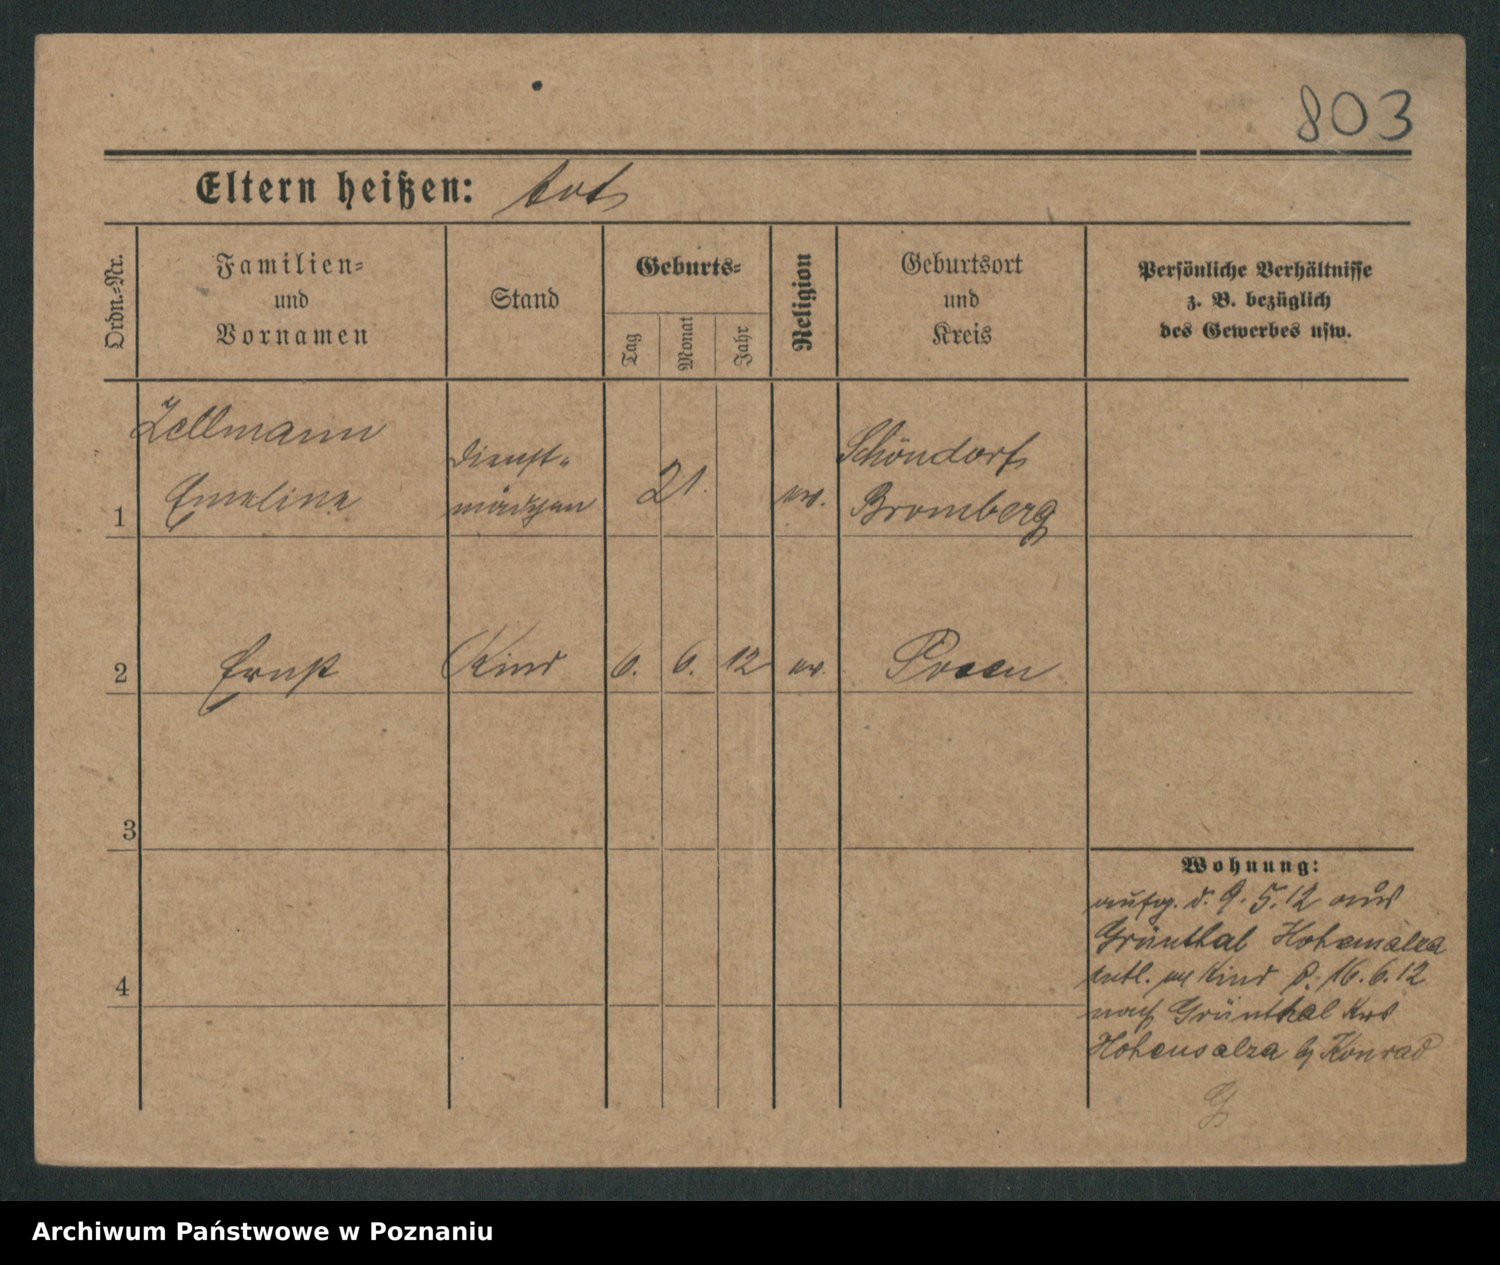 803
Eltern heißen: tot
Ordn.=Nr.
Familien=
und
Vornamen
Stand
Geburts=
Tag
Monat
Jahr
Religion
Geburtsort
und
Kreis
Persönliche Verhältnisse
z. B. bezüglich
des Gewerbes usw.
1
Zellmann
Emeline
Dienst=
mädchen
21.
ev.
Schöndorf
Bromberg
2
Ernst
Kind
6. 6. 12
ev.
Posen
3
4
Wohnung:
aufg. d. 9. 5. 12 aus
Grünthal Hohensalza
entl. Kind d. 16. 6. 12
nach Grünthal Krs
Hohensalza b/ Konrad
Archiwum Państwowe w Poznaniu